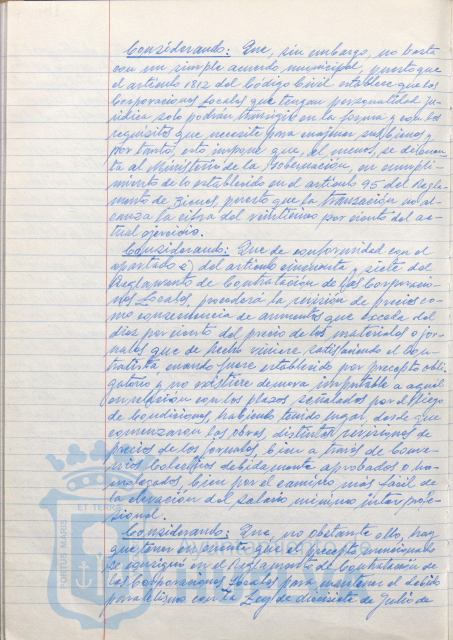 Considerando: Que, sin embargo, no basta
con un simple acuerdo municipal, puesto que
el artículo 1812 del Código Civil establece que las
Corporaciones Locales que tengan personalidad ju-
rídica solo podrán transigir en la forma y con los
requisitos que necesite para enajenar sus bienes, y
por tanto, esto impone que, al menos, se dé cuen-
ta al Ministerio de la Gobernación, en cumpli-
miento de lo establecido en el artículo 95 del Regla-
mento de Bienes, puesto que la transacción no al-
canza la cifra del veinticinco por ciento del ac-
tual ejercicio.
Considerando: Que de conformidad con el
apartado del artículo cincuenta y siete del
Reglamento de Contratación de las Corporacio-
nes Locales, procederá la revisión de precios co-
mo consecuencia de aumentos que exceda del
diez por ciento del precio de los materiales o jor-
nales que de hecho viniere satisfaciendo el con-
tratista cuando fuere establecido por precepto obli-
gatorio y no existiere demora imputable a aquel
en relación con los plazos señalados por el Pliego
de Condiciones, habiendo tenido lugar, desde que
comenzaron las obras, distintas revisiones de
precios de los jornales, bien a través de Conve-
nios Colectivos debidamente aprobados o ho-
mologados, bien por el camino más fácil de
la elevación del salario mínimo interprofe-
sional.
Considerando: Que, no obstante ello, hay
que tener en cuenta que el precepto mencionado
se consignó en el Reglamento de Contratación de
las Corporaciones Locales para mantener el debido
paralelismo con la Ley de diecisiete de Julio de
ET TERRIS
FORTUS MARIS